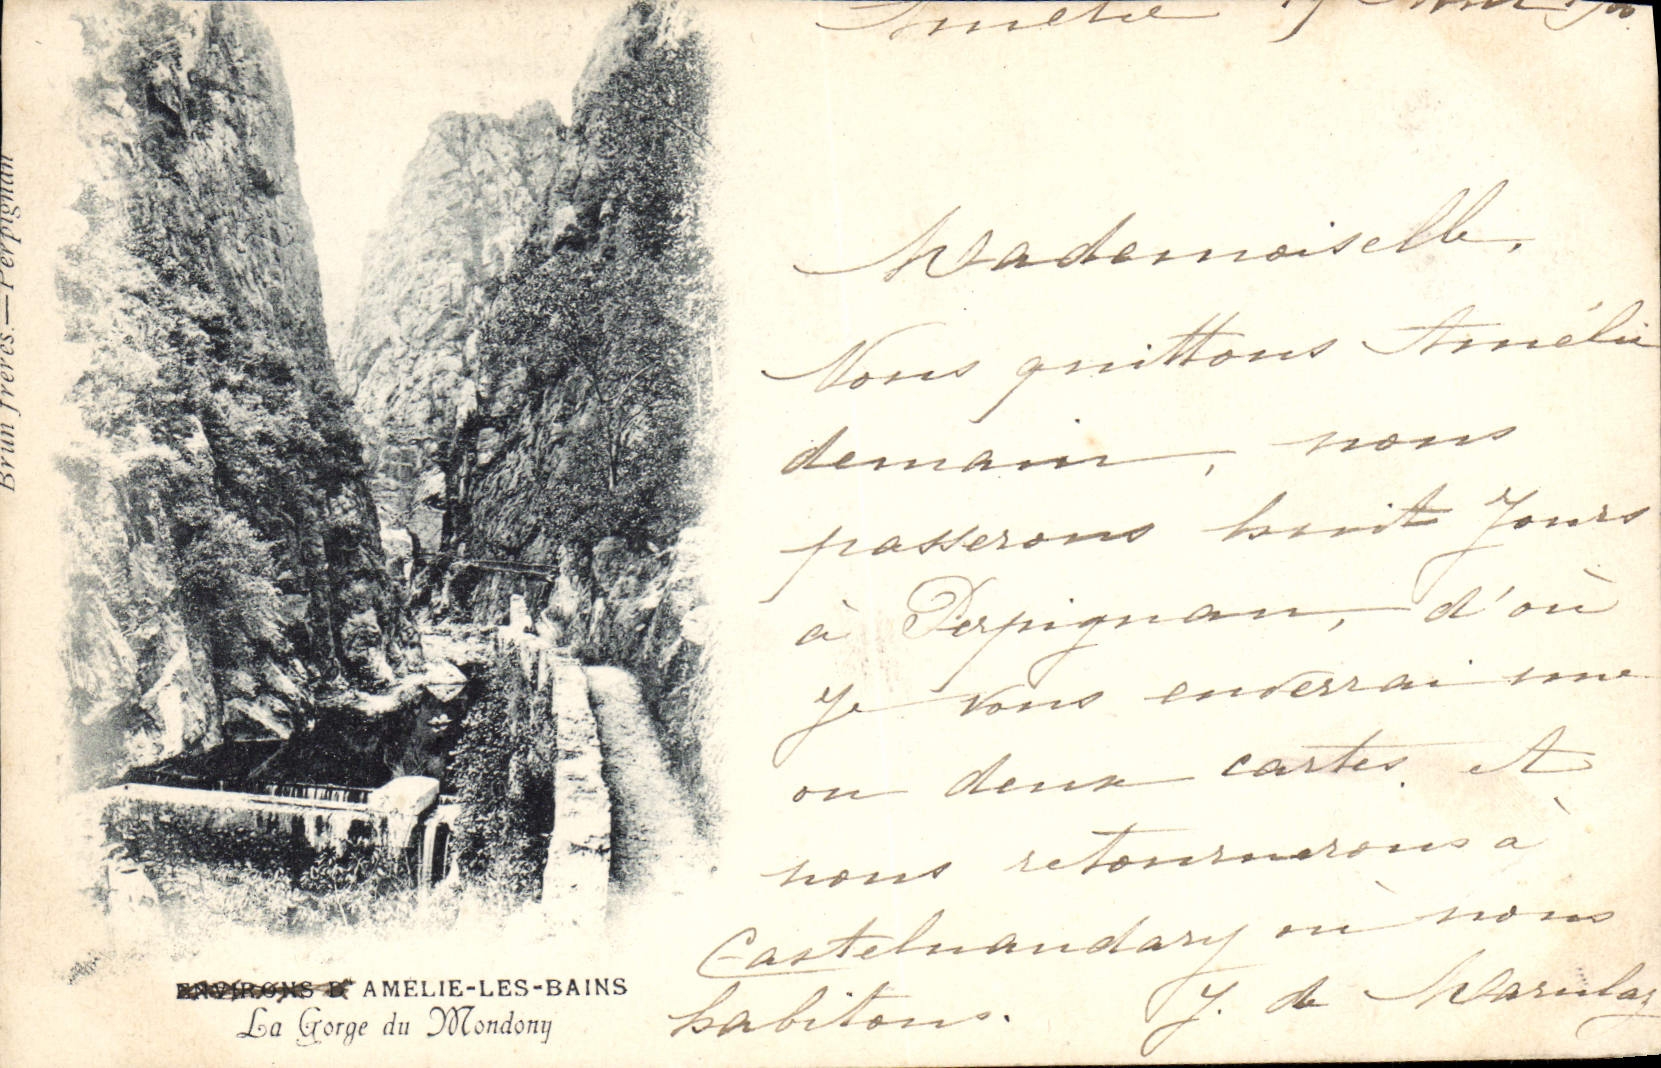 Amélie
Mademoiselle,
Nous quittons Amélie
demain, nous
passerons huit Jours
à Perpignan, d'où
Je vous enverrai une
ou deux cartes. Et
nous retournerons à
Castelnaudary où nous
habitons. J. de Marulaz
Brun frères.—Perpignan
ENVIRONS D' AMÉLIE-LES-BAINS
La Gorge du Mondony